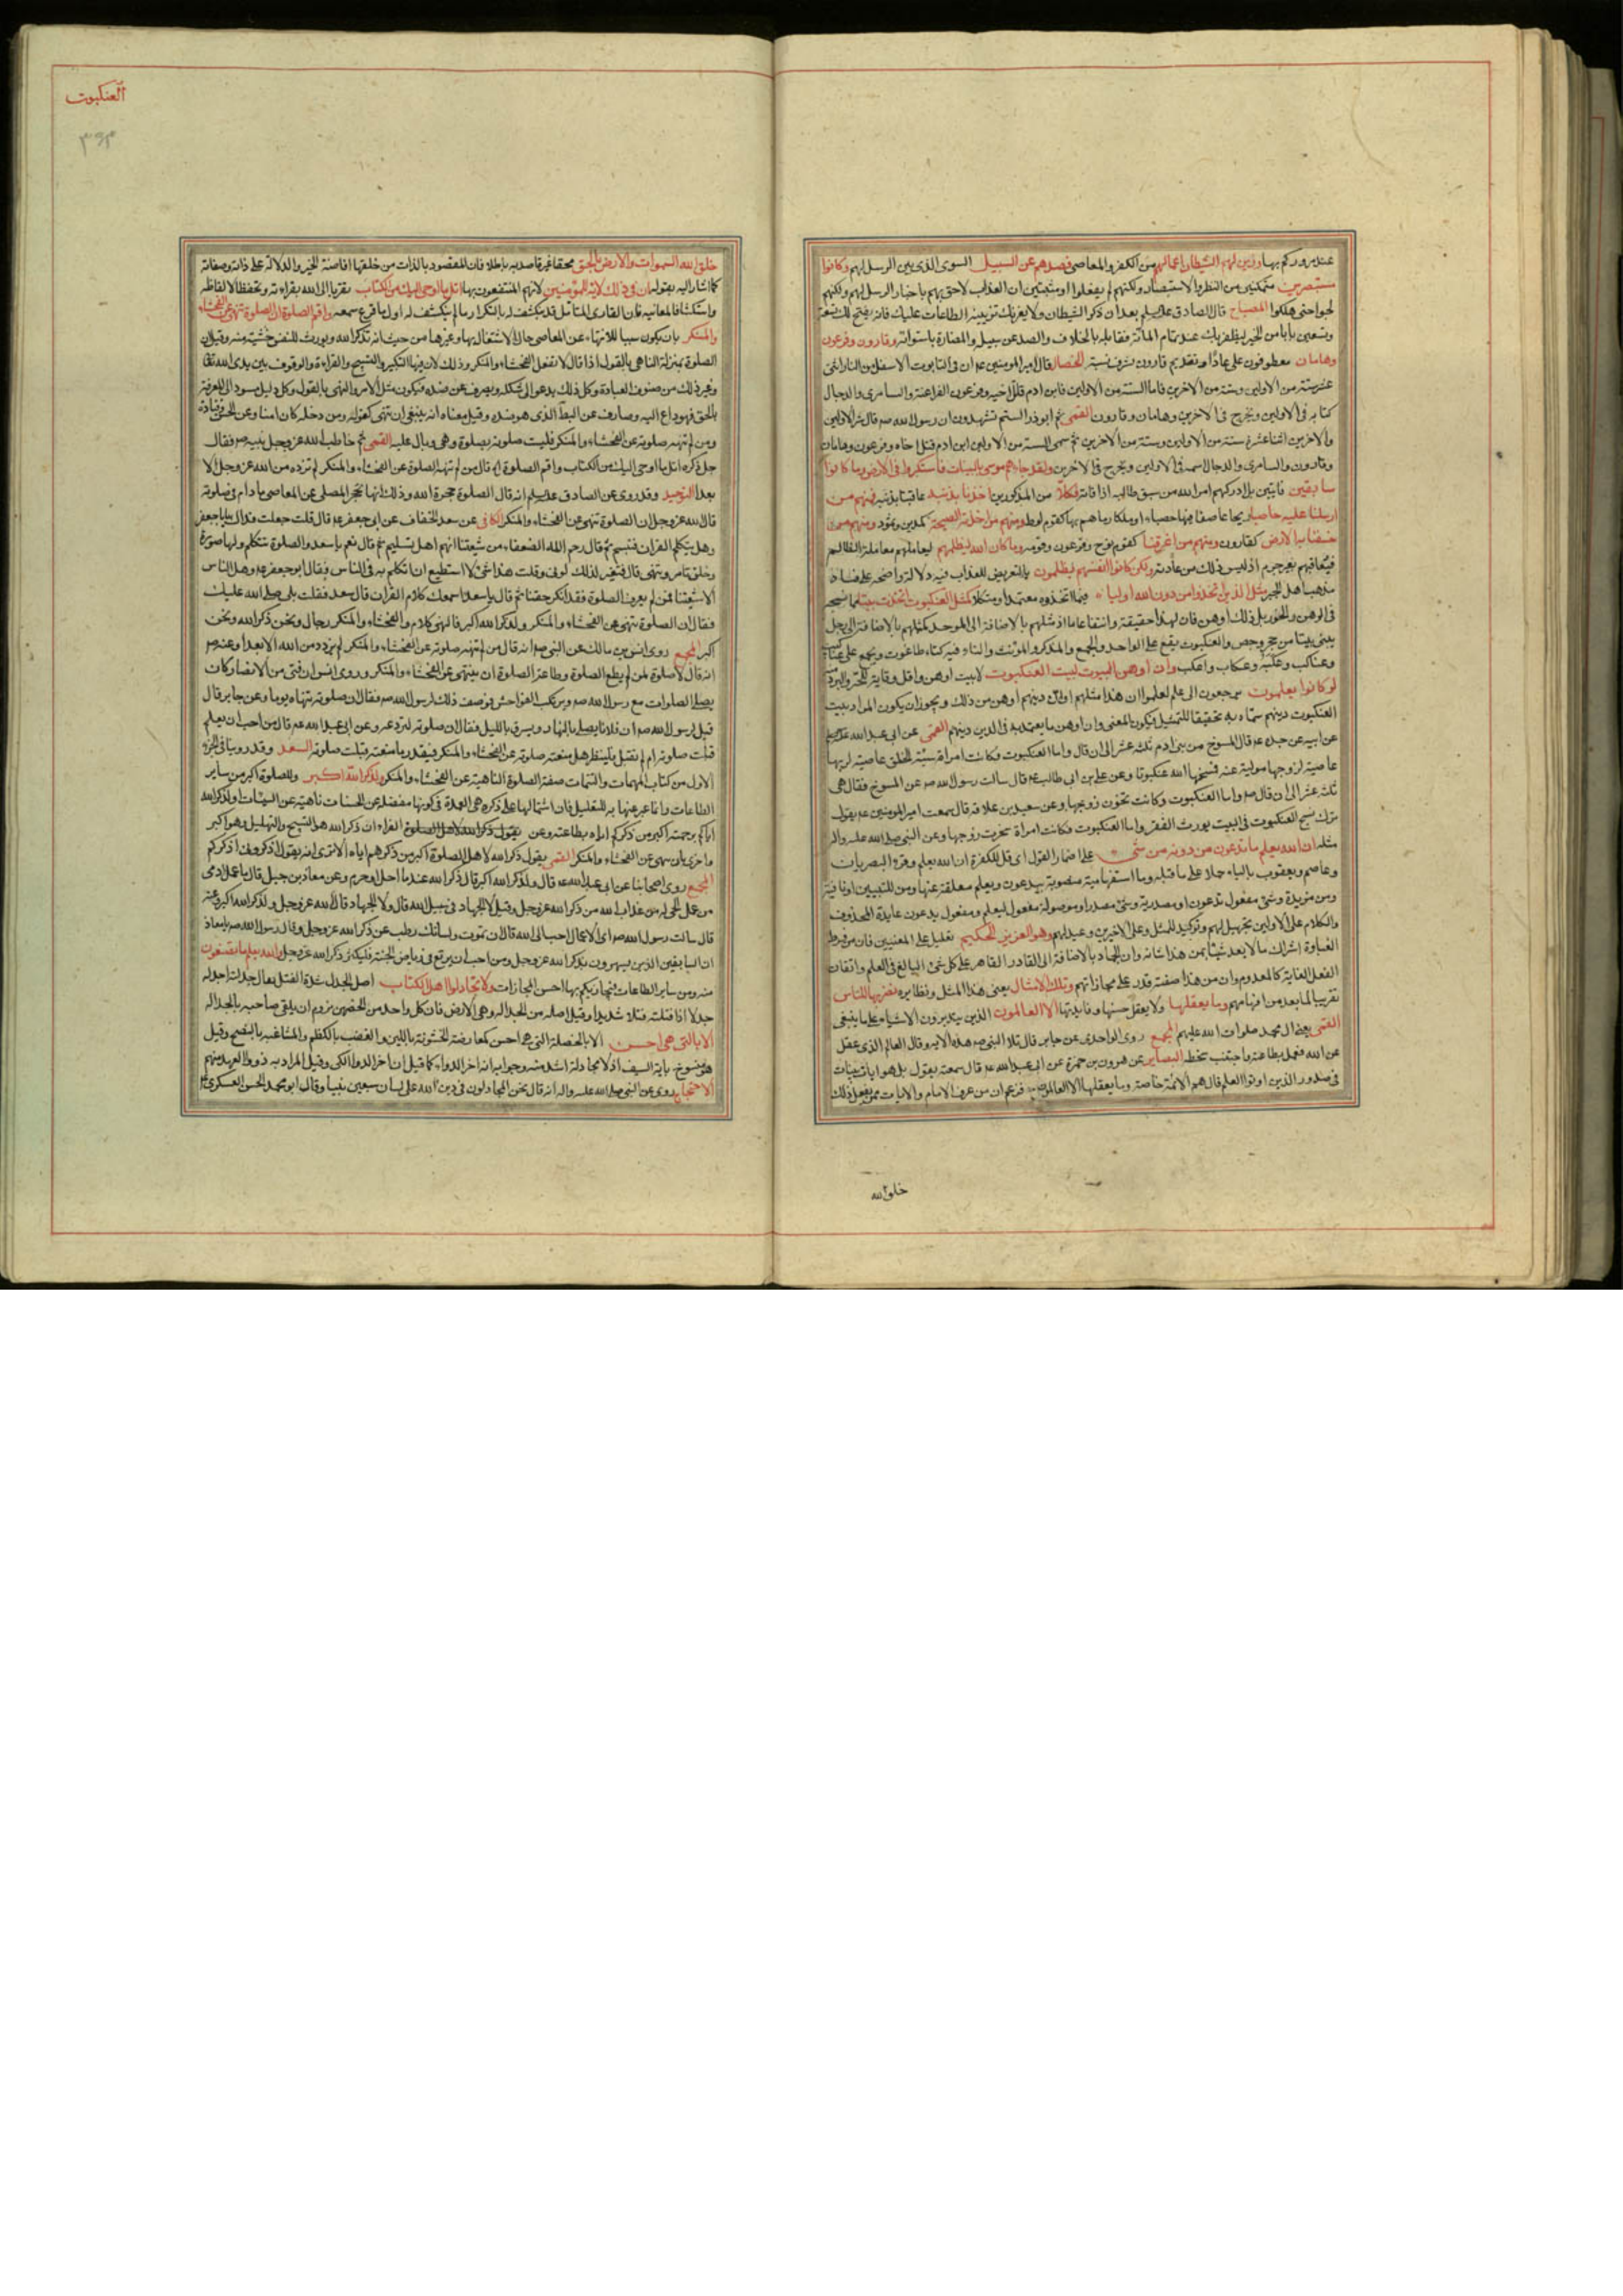 عند مروركم بها وزين لهم الشيطان اعمالهم من الكفر والمعاصى فصدهم عن السبيل السوى الذى بين الرسل لهم وكانوا
مستبصرين متمكنين من النظر والاستبصار ولكنهم لم يفعلوا او متبينين ان العذاب لاحق بهم باخبار الرسل لهم ولكنهم
لجوا حتى هلكوا المصباح قال الصادق
وهامان معطوفون على عادا وتقديم قارون لشرف نسبه الخصال قال امير المؤمنين ان فى التابوت الاسفل من النار اثنى
عشر ستة من الاولين وستة من الاخرين فاما الستة من الاولين فابن ادم قاتل اخيه وفرعون الفراعنة والسامرى والدجال
كتابه فى الاولين ويخرج فى الاخرين وهامان وقارون القمى ثم ابو ذر الستم تشهدون ان رسول الله ص قال شر الاولين
والاخرين اثنا عشر ستة من الاولين وستة من الاخرين ثم سمى الستة من الاولين ابن ادم قتل اخاه وفرعون وهامان
وقارون والسامرى والدجال اسمه فى الاولين ويخرج فى الاخرين ولقد جاءهم موسى بالبينات فاستكبروا فى الارض وما كانوا
سابقين فايتين بل ادركهم امر الله من سبق طالبه اذا فاته فكلا من المذكورين اخذنا بذنبه عاقبناه بذنبه فمنهم من
ارسلنا عليه حاصبا ريحا عاصفا فيها حصباء او ملكا رماهم بها كقوم لوط ومنهم من اخذته الصيحة كمدين وثمود ومنهم من
خسفنا به الارض كقارون ومنهم من اغرقنا كقوم نوح وفرعون وقومه وما كان الله ليظلمهم ليعاملهم معاملة الظالم
فيعاقبهم بغير جرم اذ ليس ذلك من عادته ولكن كانوا انفسهم يظلمون بالتعريض للعذاب فيه دلالة واضحة على فساد
مذهب اهل الجبر مثل الذين اتخذوا من دون الله اولياء فيما اتخذوه معتمدا ومتكلا كمثل العنكبوت اتخذت بيتا
فى الوهن والخور بل ذلك اوهن فان لهذا حقيقة وانتفاعا ما او مثلهم بالاضافة الى الموحد كمثله بالاضافة الى رجل
يبنى بيتا من حجر وجص والعنكبوت يقع على الواحد والجمع والمذكر والمؤنث والتاء فيه كتاء طاغوت ويجمع على
وعناكب وان اوهن البيوت لبيت العنكبوت لا بيت اوهن واقل وقاية للحر والبرد منه
لو كانوا يعلمون يرجعون الى علم لعلموا ان هذا مثلهم دينهم اوهن من ذلك ويجوز ان يكون المراد ببيت
العنكبوت دينهم سماه به تحقيقا للتمثيل فيكون المعنى وان اوهن ما يعتمد به فى الدين دينهم القمى عن ابى عبد الله
عن ابيه عن جده قال المسوخ من بنى ادم ثلثة عشر الى ان قال واما العنكبوت فكانت امراة سيئة الخلق عاصية لربها
عاصية لزوجها مولية عنه فمسخها الله عنكبوتا وعن على بن ابى طالب قال سالت رسول الله ص عن المسوخ فقال هى
ثلثة عشر الى ان قال واما العنكبوت وكانت تخون زوجها وعن سعيد بن علاقة قال سمعت امير المؤمنين يقول
ترك نسج العنكبوت فى البيت يورث الفقر واما العنكبوت فكانت امراة سحرت زوجها وعن النبى صلى الله عليه واله
مثله ان الله يعلم ما تدعون من دونه من شئ على اضمار القول اى قل للكفرة ان الله يعلم وقره البصريان
وعاصم ويعقوب بالياء حملا على ما قبله وما استفهامية منصوبة بيدعون ويعلم معلقة عنها ومن للتبيين او نافية
ومن مزيدة وشئ مفعول تدعون او مصدرية وشئ مصدر او موصولة مفعول ليعلم ومفعول يدعون عايده المحذوف
والكلام على الاولين تجهيل لهم وتوكيد للمثل وعلى الاخيرين وعيد لهم وهو العزيز الحكيم تعليل على المعنيين فان من فرط
الغباوة اشراك ما لا يعد شيئا بمن هذا شانه وان الجماد بالاضافة الى القادر القاهر على كل شئ البالغ فى العلم واتقان
الفعل الغاية كالمعدوم وان من هذا صفته قدر على مجازاتهم وتلك الامثال يعنى هذا المثل ونظايره نضربها للناس
تقريبا لما بعد من افهامهم وما يعقلها ولا يعقل حسنها وفايدتها الا العالمون الذين يتدبرون الاشياء على ما ينبغى
القمى يعنى ال محمد صلوات الله عليهم المجمع روى الواحدى عن جابر قال تلا النبى ص هذه الاية وقال العالم الذى عقل
عن الله فعمل بطاعته واجتنب سخطه البصاير عن هرون بن حمزة عن ابى عبد الله قال سمعته يقول بل هو ايات بينات
فى صدور الذين اوتوا العلم قال هم الائمة خاصة وما يعقلها الا العالمون فزعم ان من عرف الامام والايات ممن يعقل ذلك
خلق الله
العنكبوت
٣٩٣
خلق الله السموات والارض بالحق محقا غير قاصد به باطلا فان المقصود بالذات من خلقها افاضة الخير والدلالة على ذاته وصفاته
كما اشار اليه بقوله ان فى ذلك لاية للمؤمنين لانهم المنتفعون بها اتل ما اوحى اليك من الكتاب تقربا الى الله بقراءته وتحفظا لالفاظه
واستكشافا لمعانيه فان القارى المتامل قد ينكشف له بالتكرار ما لم ينكشف له اول ما قرع سمعه واقم الصلوة ان الصلوة تنهى عن الفحشاء
والمنكر بان يكون سببا للانتهاء عن المعاصى حال الاشتغال بها وغيرها من حيث انه تذكر الله ويورث للنفس خشية منه وقيل ان
الصلوة بمنزلة الناهى بالقول اذا قال لا تفعل الفحشاء والمنكر وذلك لان فيها التكبير والتسبيح والقراءة والوقوف بين يدى الله تعالى
وغير ذلك من صنوف العبادة وكل ذلك يدعو الى شكله ويصرف عن ضده فيكون مثل الامر والنهى بالقول وكل دليل مؤد الى المعرفة
بالحق فهو داع اليه وصارف عن الباطل الذى هو ضده وقيل معناه انه ينبغى ان تنهى كقوله ومن دخله كان امنا
ومن لم تنهه صلوته عن الفحشاء والمنكر فليست صلوته بصلوة وهى وبال عليه القمى ثم خاطب الله عز وجل نبيه ص فقال
جل ذكره اتل ما اوحى اليك من الكتاب واقم الصلوة الاية قال من لم تنهه الصلوة عن الفحشاء والمنكر لم تزده من الله عز وجل الا
بعدا التوحيد وقد روى عن الصادق انه قال الصلوة حجزة الله وذلك انها تحجز المصلى عن المعاصى ما دام فى صلوته
قال الله عز وجل ان الصلوة تنهى عن الفحشاء والمنكر الكافى عن سعد الخفاف عن ابى جعفر قال قلت جعلت فداك يا ابا جعفر
وهل يتكلم القران فتبسم ثم قال رحم الله الضعفاء من شيعتنا انهم اهل تسليم ثم قال نعم يا سعد والصلوة تتكلم ولها صورة
وخلق تامر وتنهى قال فتغير لذلك لونى وقلت هذا شئ لا استطيع ان اتكلم به فى الناس فقال ابو جعفر وهل الناس
الا شيعتنا فمن لم يعرف الصلوة فقد انكر حقنا ثم قال يا سعد اسمعك كلام القران قال سعد فقلت بلى صلى الله عليك
فقال ان الصلوة تنهى عن الفحشاء والمنكر ولذكر الله اكبر فالنهى كلام والفحشاء والمنكر رجال ونحن ذكر الله ونحن
اكبر المجمع روى انس بن مالك عن النبى ص انه قال من لم تنهه صلوته عن الفحشاء والمنكر لم يزدد من الله الا بعدا وعنه ص
انه قال لا صلوة لمن لم يطع الصلوة وطاعة الصلوة ان ينتهى عن الفحشاء والمنكر وروى انس ان فتى من الانصار كان
يصلى الصلوات مع رسول الله ص ويرتكب الفواحش فوصف ذلك لرسول الله ص فقال ان صلوته تنهاه يوما وعن جابر قال
قيل لرسول الله ص ان فلانا يصلى بالنهار ويسرق بالليل فقال ان صلوته لتردعه وعن ابى عبد الله قال من احب ان يعلم
قبلت صلوته ام لم تقبل فلينظر هل منعته صلوته عن الفحشاء والمنكر فبقدر ما منعته قبلت صلوته السعد وقد روينا فى الجزء
الاول من كتاب المهمات والتتمات صفة الصلوة الناهية عن الفحشاء والمنكر ولذكر الله اكبر وللصلوة اكبر من ساير
الطاعات وانما عبر عنها به للتعليل فان اشتمالها على ذكره هى العمدة فى كونها مفضلة على الحسنات ناهية عن السيئات او لذكر الله
اياكم برحمته اكبر من ذكركم اياه بطاعته وعن الفراء ان ذكر الله هو التسبيح والتهليل وهو اكبر
واحرى بان ينهى عن الفحشاء والمنكر القمى يقول ذكر الله لاهل الصلوة اكبر من ذكرهم اياه الا ترى انه يقول اذكرونى اذكركم
المجمع روى اصحابنا عن ابى عبد الله قال ولذكر الله اكبر قال ذكر الله عند ما احل وحرم وعن معاذ بن جبل قال ما عمل ادمى
من عمل انجى له من عذاب الله من ذكر الله عز وجل وقيل ولا الجهاد فى سبيل الله قال ولا الجهاد قال الله عز وجل ولذكر الله اكبر وعنه
قال سالت رسول الله ص اى الاعمال احب الى الله قال ان تموت ولسانك رطب عن ذكر الله عز وجل وقال رسول الله ص يا معاذ
ان السابقين الذين يسهرون بذكر الله عز وجل ومن احب ان يرتع فى رياض الجنة فليكثر ذكر الله عز وجل والله يعلم ما تصنعون
منه ومن ساير الطاعات فيجازيكم بها احسن المجازات ولا تجادلوا اهل الكتاب اصل الجدل شدة الفتل يقال جدلته اجدله
جدلا اذا فتلته فتلا شديدا وقيل اصله من الجدالة وهى الارض فان كل واحد من الخصمين يروم ان يلقى صاحبه بالجدالة
الا بالتى هى احسن الا بالخصلة التى هى احسن كمعارضة الخشونة باللين والغضب بالكظم والمشاغبة بالنصح وقيل
هو منسوخ باية السيف اذ لا مجادلة اشد منه وجوابه انه اخر الدواء كما قيل ان اخر الدواء الكى وقيل المراد به ذووا العهد منهم
الاحتجاج روى عن النبى صلى الله عليه واله انه قال نحن المجادلون فى دين الله على لسان سبعين نبيا وقال ابو محمد الحسن العسكرى